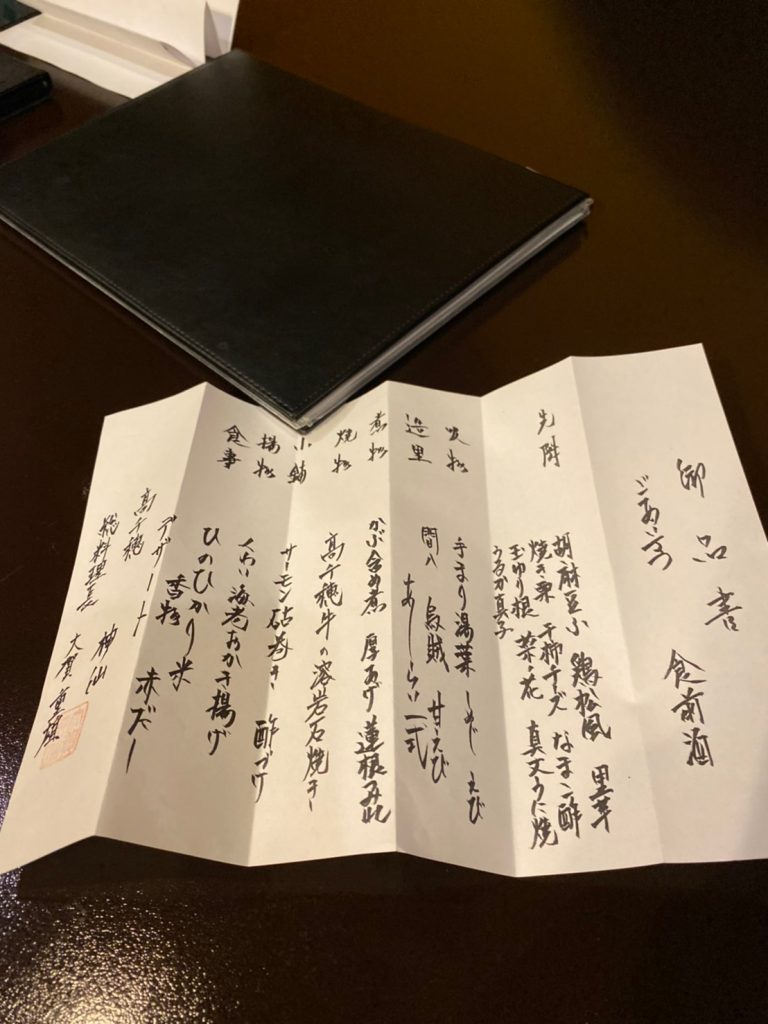 御品書
ごあいさつ 食前酒
先附 胡麻豆腐 鶏松風 里芋
焼き栗 干柿チーズ なまこ酢
玉ゆり根 菜の花 真丈うに焼
うるか真子
吸物 手まり湯葉 しめじ えび
造里 間八 烏賊 甘えび
あしらい一式
煮物 かぶ含め煮 厚あげ 蓮根
焼物 高千穂牛の溶岩石焼き
小鍋
サーモン砧巻き 酢づけ
揚物 くわい 海老おかき揚げ
食事 ひのひかり米
香物 赤だし
デザート
高千穂 神仙
総料理長 大賀